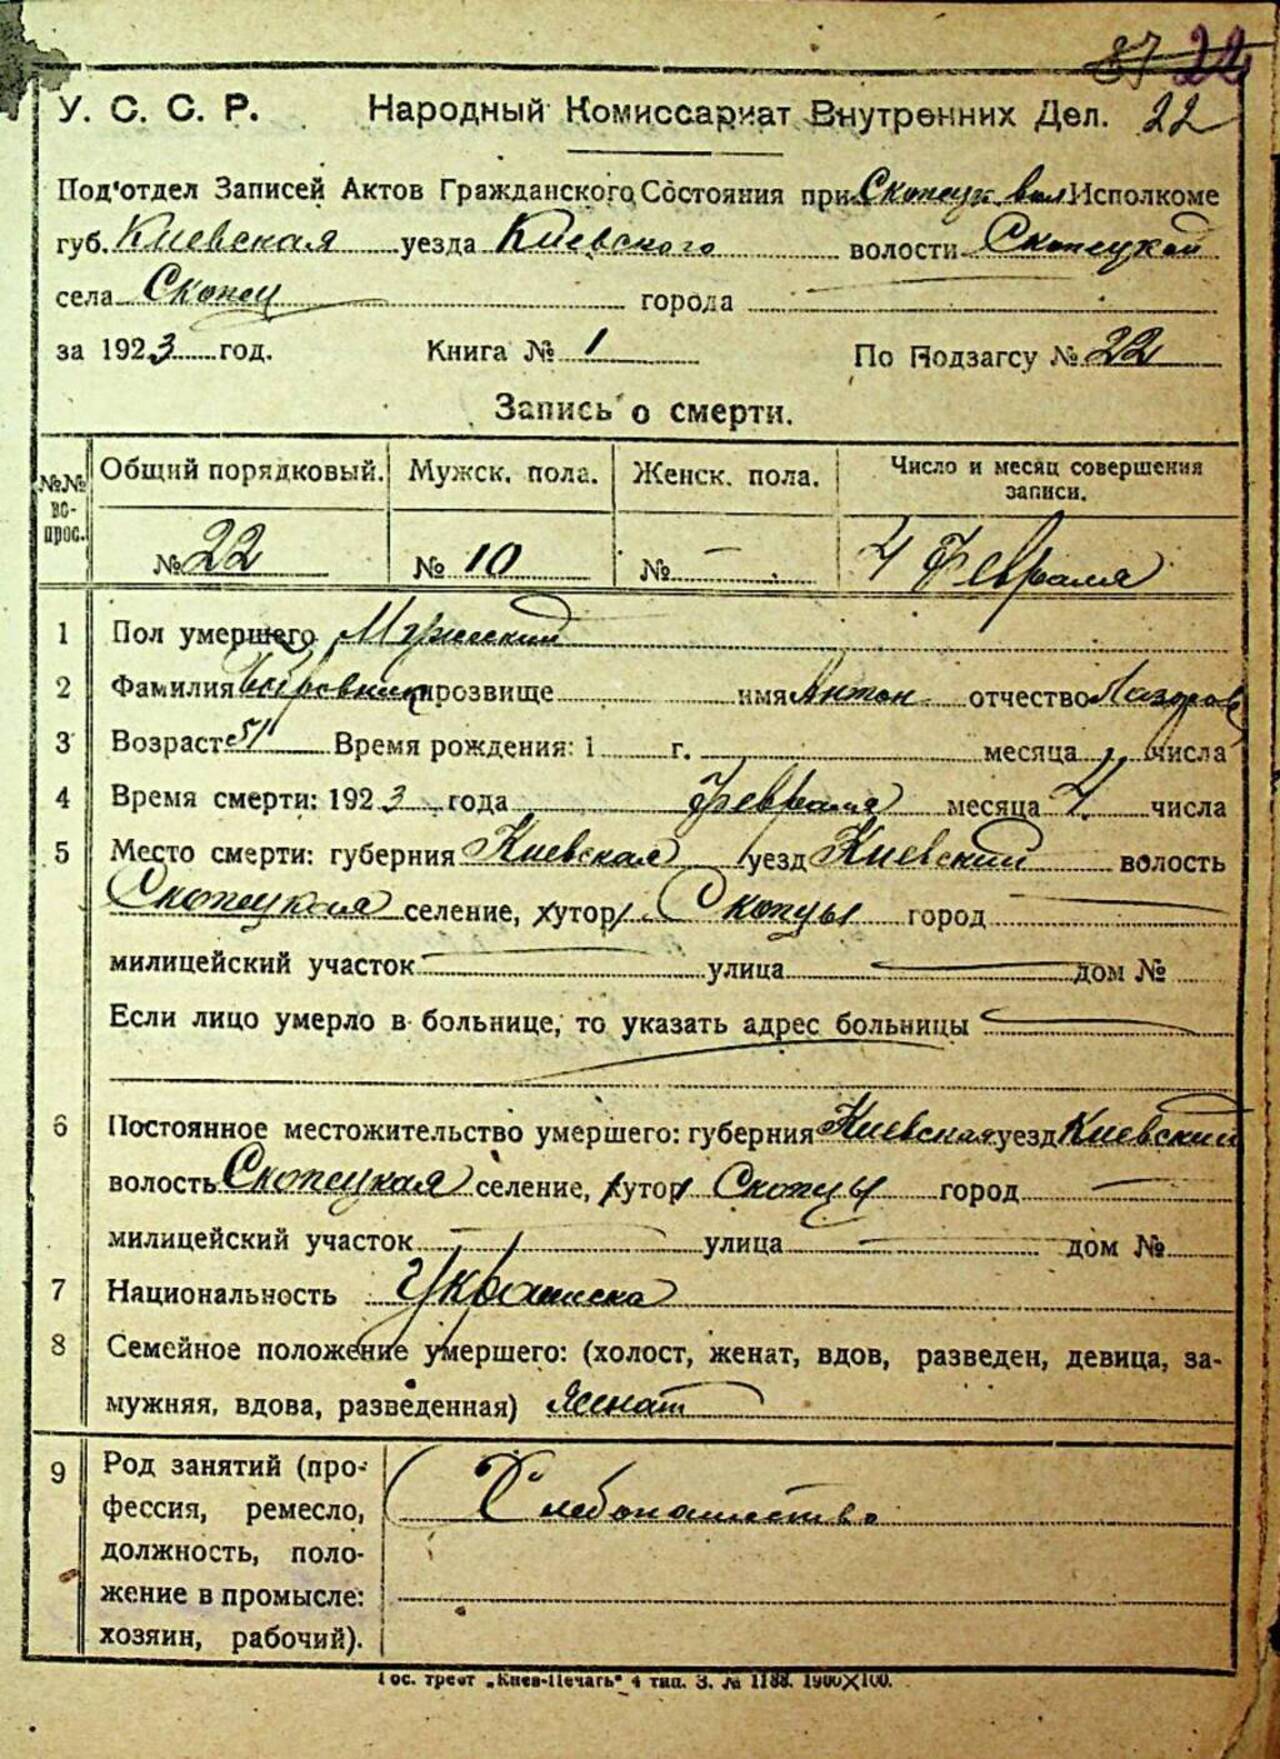 37 22
У. С. С. Р. Народный Комиссариат Внутренних Дел. 22
Под'отдел Записей Актов Гражданского Состояния при Скопецк. вол Исполкоме
губ. Киевская уезда Киевского волости Скопецкой
села Скопец города
за 1923 год. Книга № 1 По Подзагсу № 22
Запись о смерти.
№№ во-прос. Общий порядковый. Мужск. пола. Женск. пола. Число и месяц совершения записи.
№ 22 № 10 № — 4 Февраля
1 Пол умершего Мужеский
2 Фамилия прозвище имя Антон отчество Лазоров
3 Возраст 51 Время рождения: 1 г. месяца числа
4 Время смерти: 1923 года Февраля месяца 4 числа
5 Место смерти: губерния Киевская уезд Киевский волость
Скопецкая селение, хутор Скопцы город
милицейский участок улица дом №
Если лицо умерло в больнице, то указать адрес больницы
6 Постоянное местожительство умершего: губерния Киевская уезд Киевский
волость Скопецкая селение, хутор Скопцы город
милицейский участок улица дом №
7 Национальность
8 Семейное положение умершего: (холост, женат, вдов, разведен, девица, за-
мужняя, вдова, разведенная) женат
9 Род занятий (про-
фессия, ремесло, Хлебопашество
должность, поло-
жение в промысле:
хозяин, рабочий).
Гос. трест „Киев-Печать“ 4 тип. З. № 1188. 1900×100.